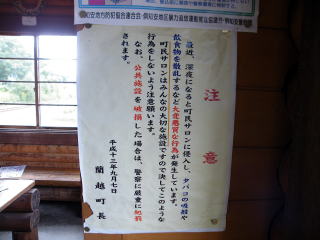 倶知安地方防犯協会連合会・倶知安地区暴力追放運動推進協議会・倶知安警察
注意
最近、深夜になると町民サロンに侵入し、タバコの吸殻や
飲食物を散乱するなど大変悪質な行為が発生しています。
町民サロンはみんなの大切な施設ですので決してこのような
行為をしないよう注意願います。
なお、公共施設を破損した場合は、警察に厳重に処罰
されます。
平成十三年九月七日
蘭越町長